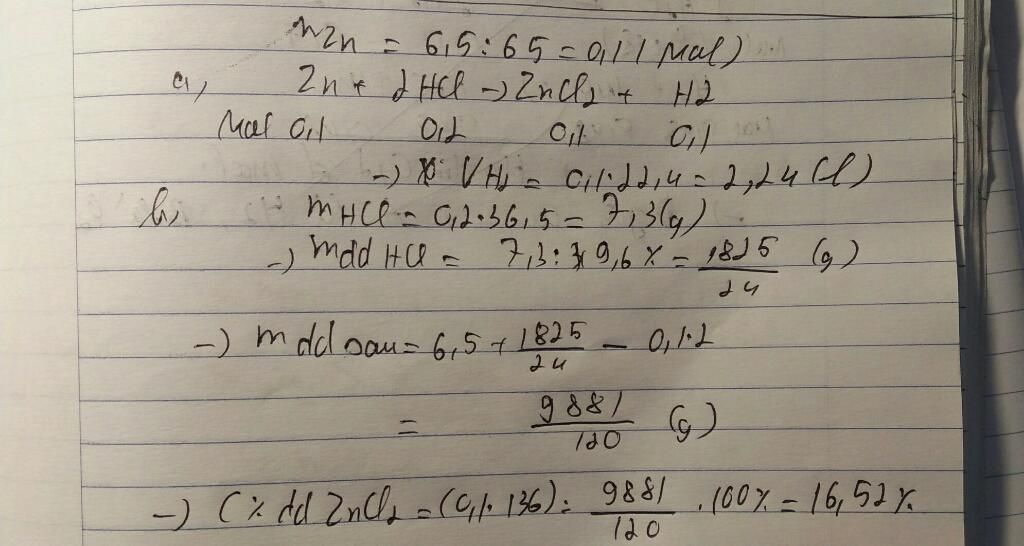 nZn = 6,5 : 65 = 0,1 (mol)
a, Zn + 2HCl -> ZnCl2 + H2
Mol 0,1 0,2 0,1 0,1
-> VH2 = 0,1.22,4 = 2,24 (l)
b, mHCl = 0,2.36,5 = 7,3(g)
-> mdd HCl = 7,3 : 9,6% = 1825/24 (g)
-> mdd sau = 6,5 + 1825/24 - 0,1.2
= 9881/120 (g)
-> C% dd ZnCl2 = (0,1.136) : 9881/120 .100% = 16,52%